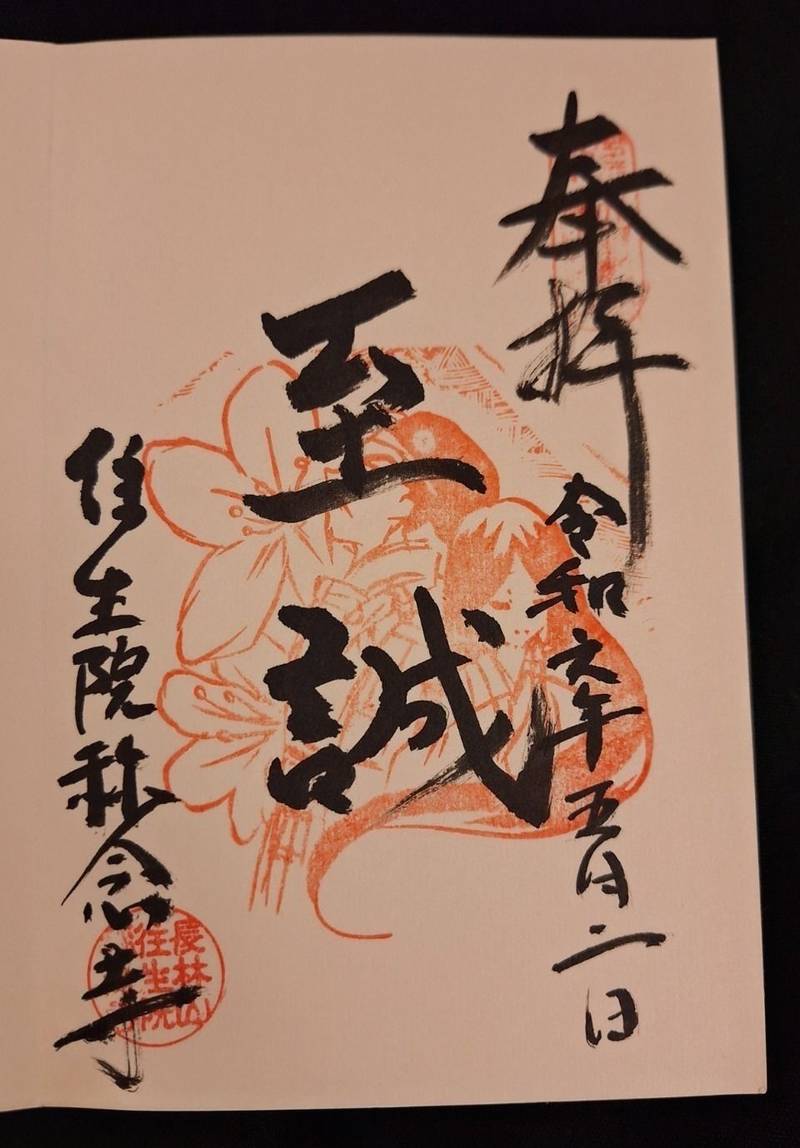 奉拝
令和六年五月二日
至誠
往生院称念寺
長林山
往生院